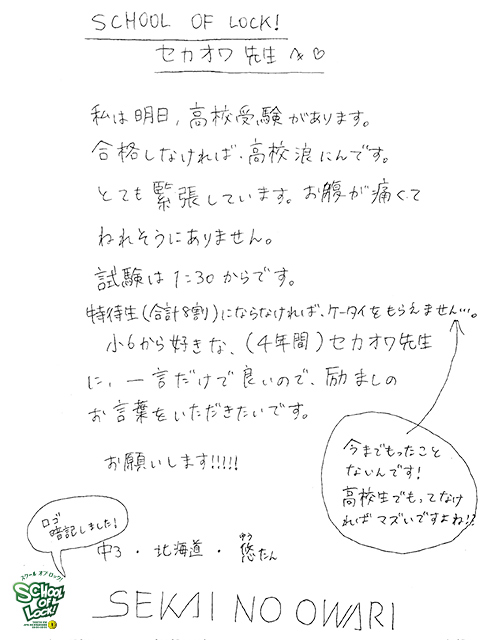 SCHOOL OF LOCK!
セカオワ先生へ♡
私は明日,高校受験があります。
合格しなければ、高校浪にんです。
とても緊張しています。お腹が痛くて
ねれそうにありません。
試験は1:30からです。
特待生(合計8割)にならなければ、ケータイをもらえません…。
小6から好きな、(4年間)セカオワ先生
に、一言だけで良いので、励ましの
お言葉をいただきたいです。
お願いします!!!!!
今までもったこと
ないんです!
高校生でもってなけ
ればマズいですよね!?
ロゴ
暗記しました!
中3・北海道・悠たん
ゆう
スクール オブ ロック!
SCHOOL
OF
LOCK!
SEKAI NO OWARI